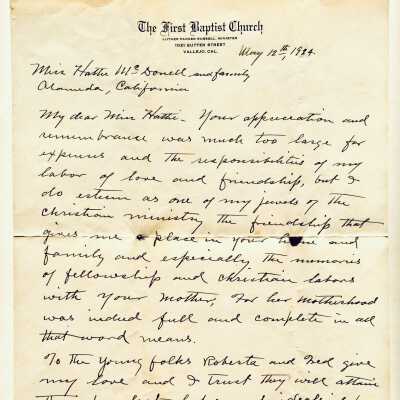 The First Baptist Church
LUTHER PARKER RUSSELL, MINISTER
1021 SUTTER STREET
VALLEJO, CAL.
May 12th, 1924
Miss Hattie McDonell and family
Alameda, California
My dear Miss Hattie - Your appreciation and
remembrance was much too large for
expenses and the responsibilities of my
labor of love and friendship, but I
do esteem as one of my jewels of the
Christian ministry the friendship that
gives me a place in your home and
family and especially the memories
of fellowship and Christian labors
with your mother. For her motherhood
was indeed full and complete in all
that word means.
To the young folks Roberta and give
my love and I trust they will attain